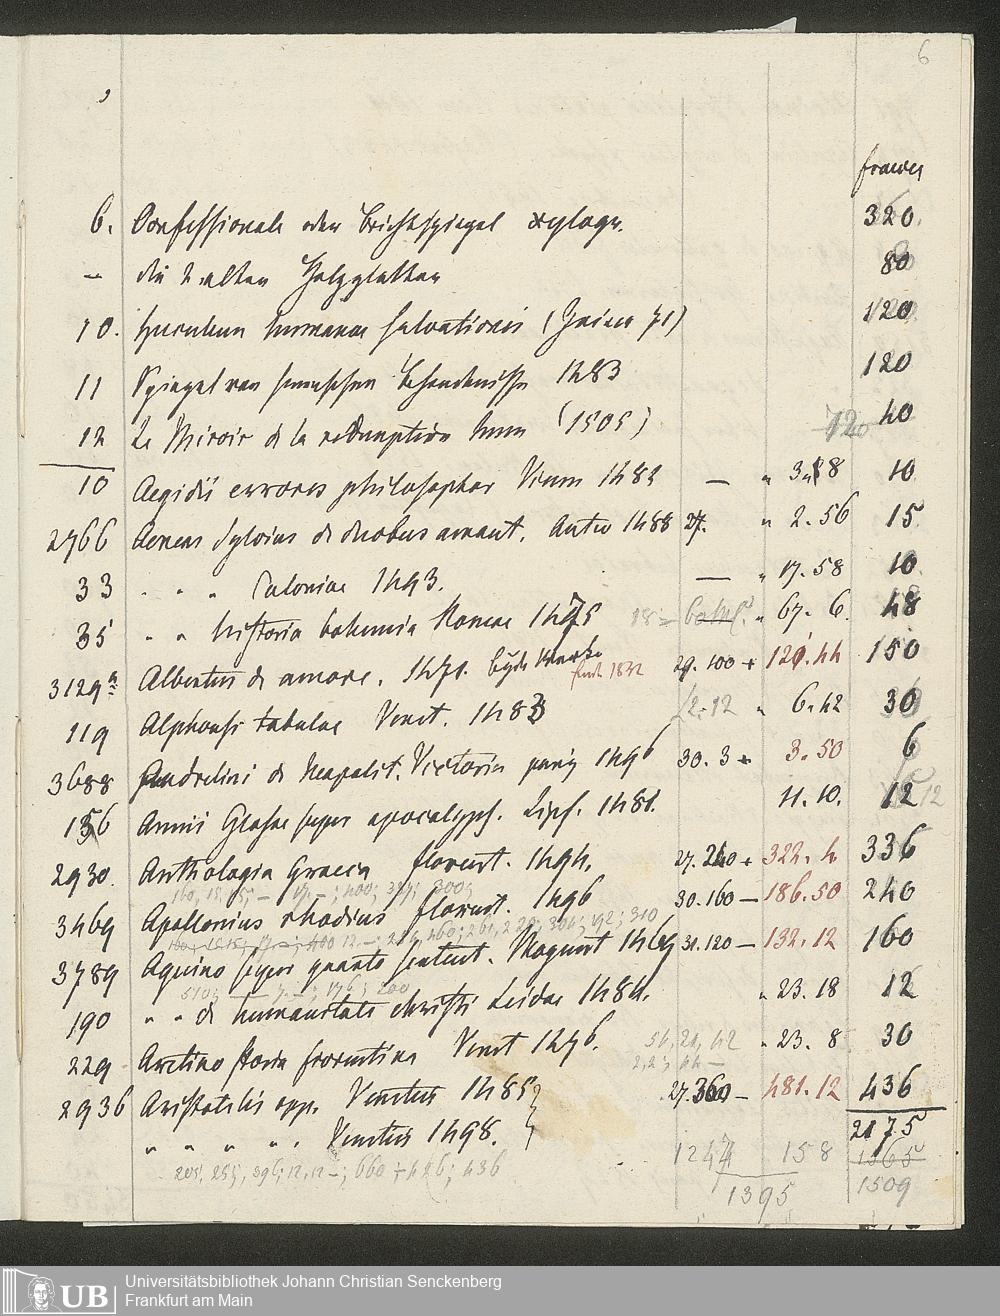 6
francs
6. Confessionale oder Beichtspiegel xylogr. 320.
— die 2 alten Holzplatten 80
10. Speculum humanae salvationis ( 71) 120
11 Spiegel van 1483 120
12 Le Miroir de la redemption hum (1505) 72 40
10 Aegidii errores philosophor Vienn 1482 — " 3. 88 10
2766 Aeneas Sylvius de duobus amant. Antw 1488 27. " 2. 56 15
33 " " " Coloniae 1493. — " 17. 58 10
35 " " historia bohemia Romae 1475 18 = " 67. 6. 48
3129a Albertus de amore. 1471. 1832 29. 100 + 120. 44 150
119 Alphonsi tabulae Venet. 1483 12. 12 " 6. 42 30
3688 Andrelini de Neapolit. Victoria paris 1496 30. 3 + 3. 50 6
136 Annii Glossa super apocalyps. Lips. 1481. 11. 10. 12 12
2930. Anthologia Graeca florent. 1494. 27. 240 + 322. 4 336
3469 Apollonius rhodius florent. 1496 30. 160 — 186. 50 240
3789 Aquino super quarto sentent. Mogunt 1469 31. 120 — 132. 12 160
510; — 7. —; 176; 200
190 " " de humanitate christi Leidae 1484. " 23. 18 12
229 Aretino storia fiorentina Venet 1476. 51, 21, 42 " 23. 8 30
2936 Aristotelis opp. Venetiis 1485 27. 360 — 481. 12 436
" " " " " Venetiis 1498. 2175
1247 158 1365
205, 255, 396; 12, 12 —; 660 + 426; 436
1395 1509
Universitätsbibliothek Johann Christian Senckenberg
Frankfurt am Main
UB